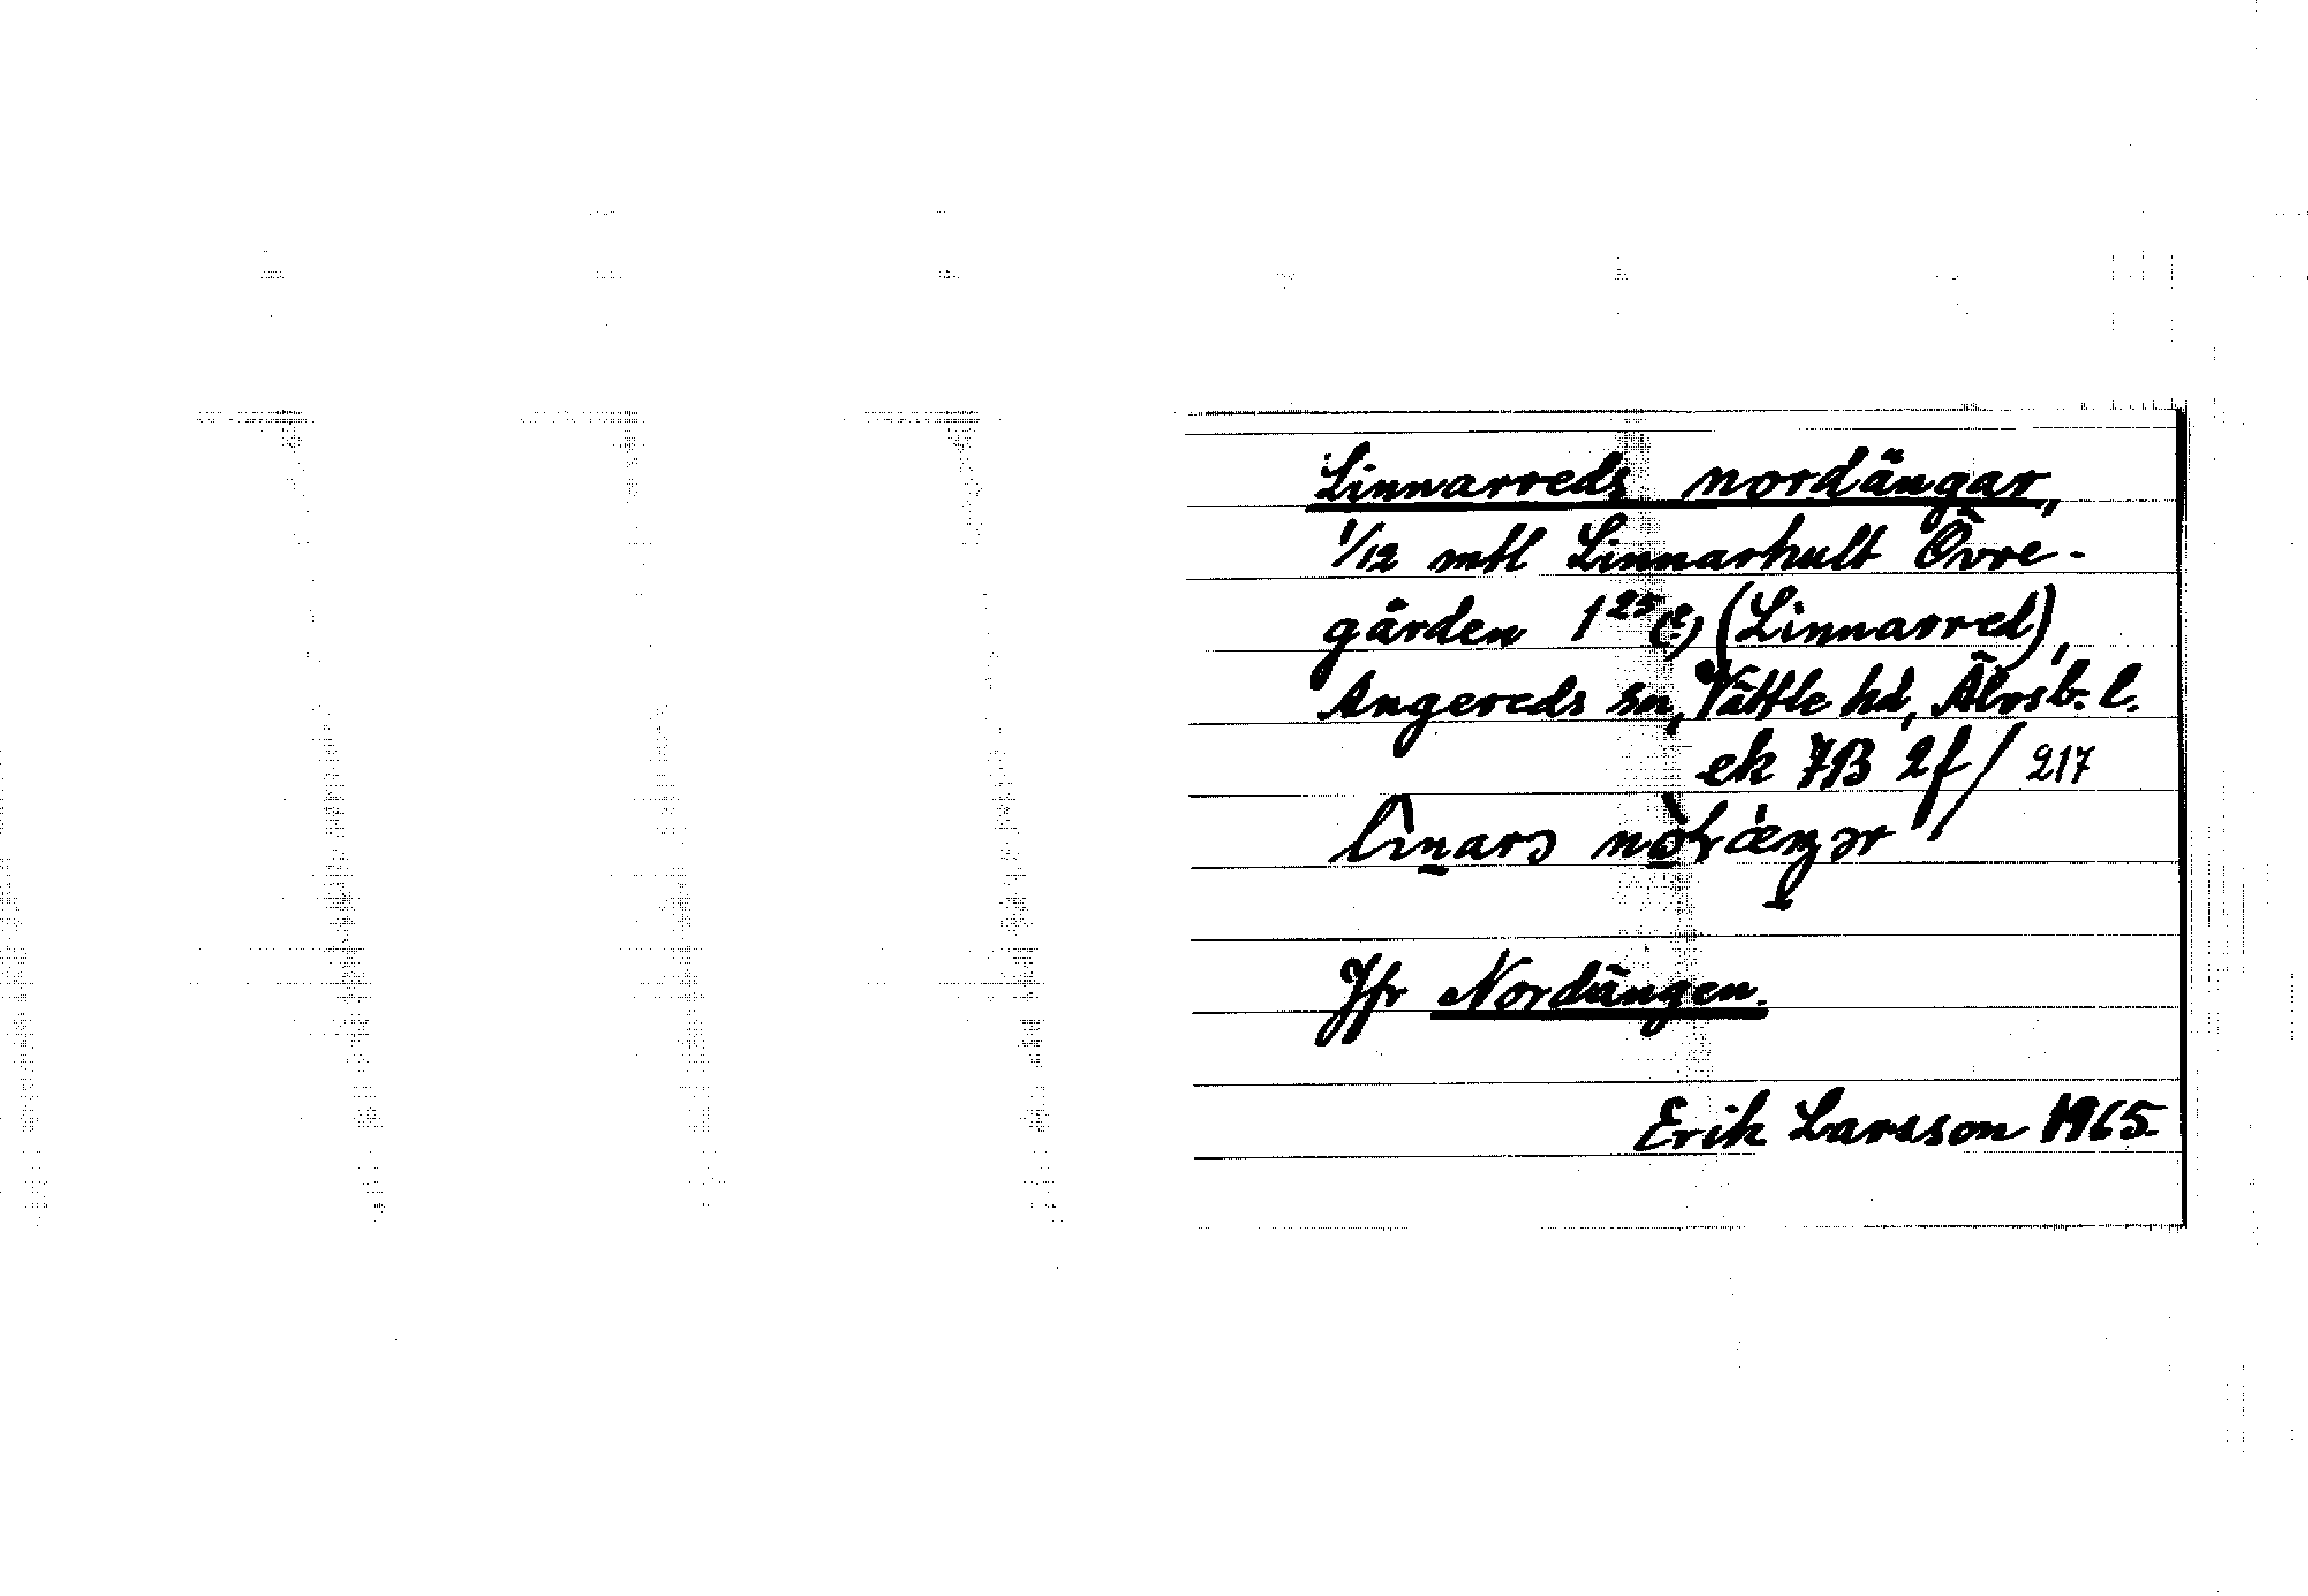 Linnarreds nordängar,
1/12 mtl Linnarhult Övre-
gården 1²⁵(?) (Linnarred),
Angereds sn, Vättle hd, Älvsb. l.
ek 7B 2f/217
Jfr Nordängen.
Erik Larsson 1965.